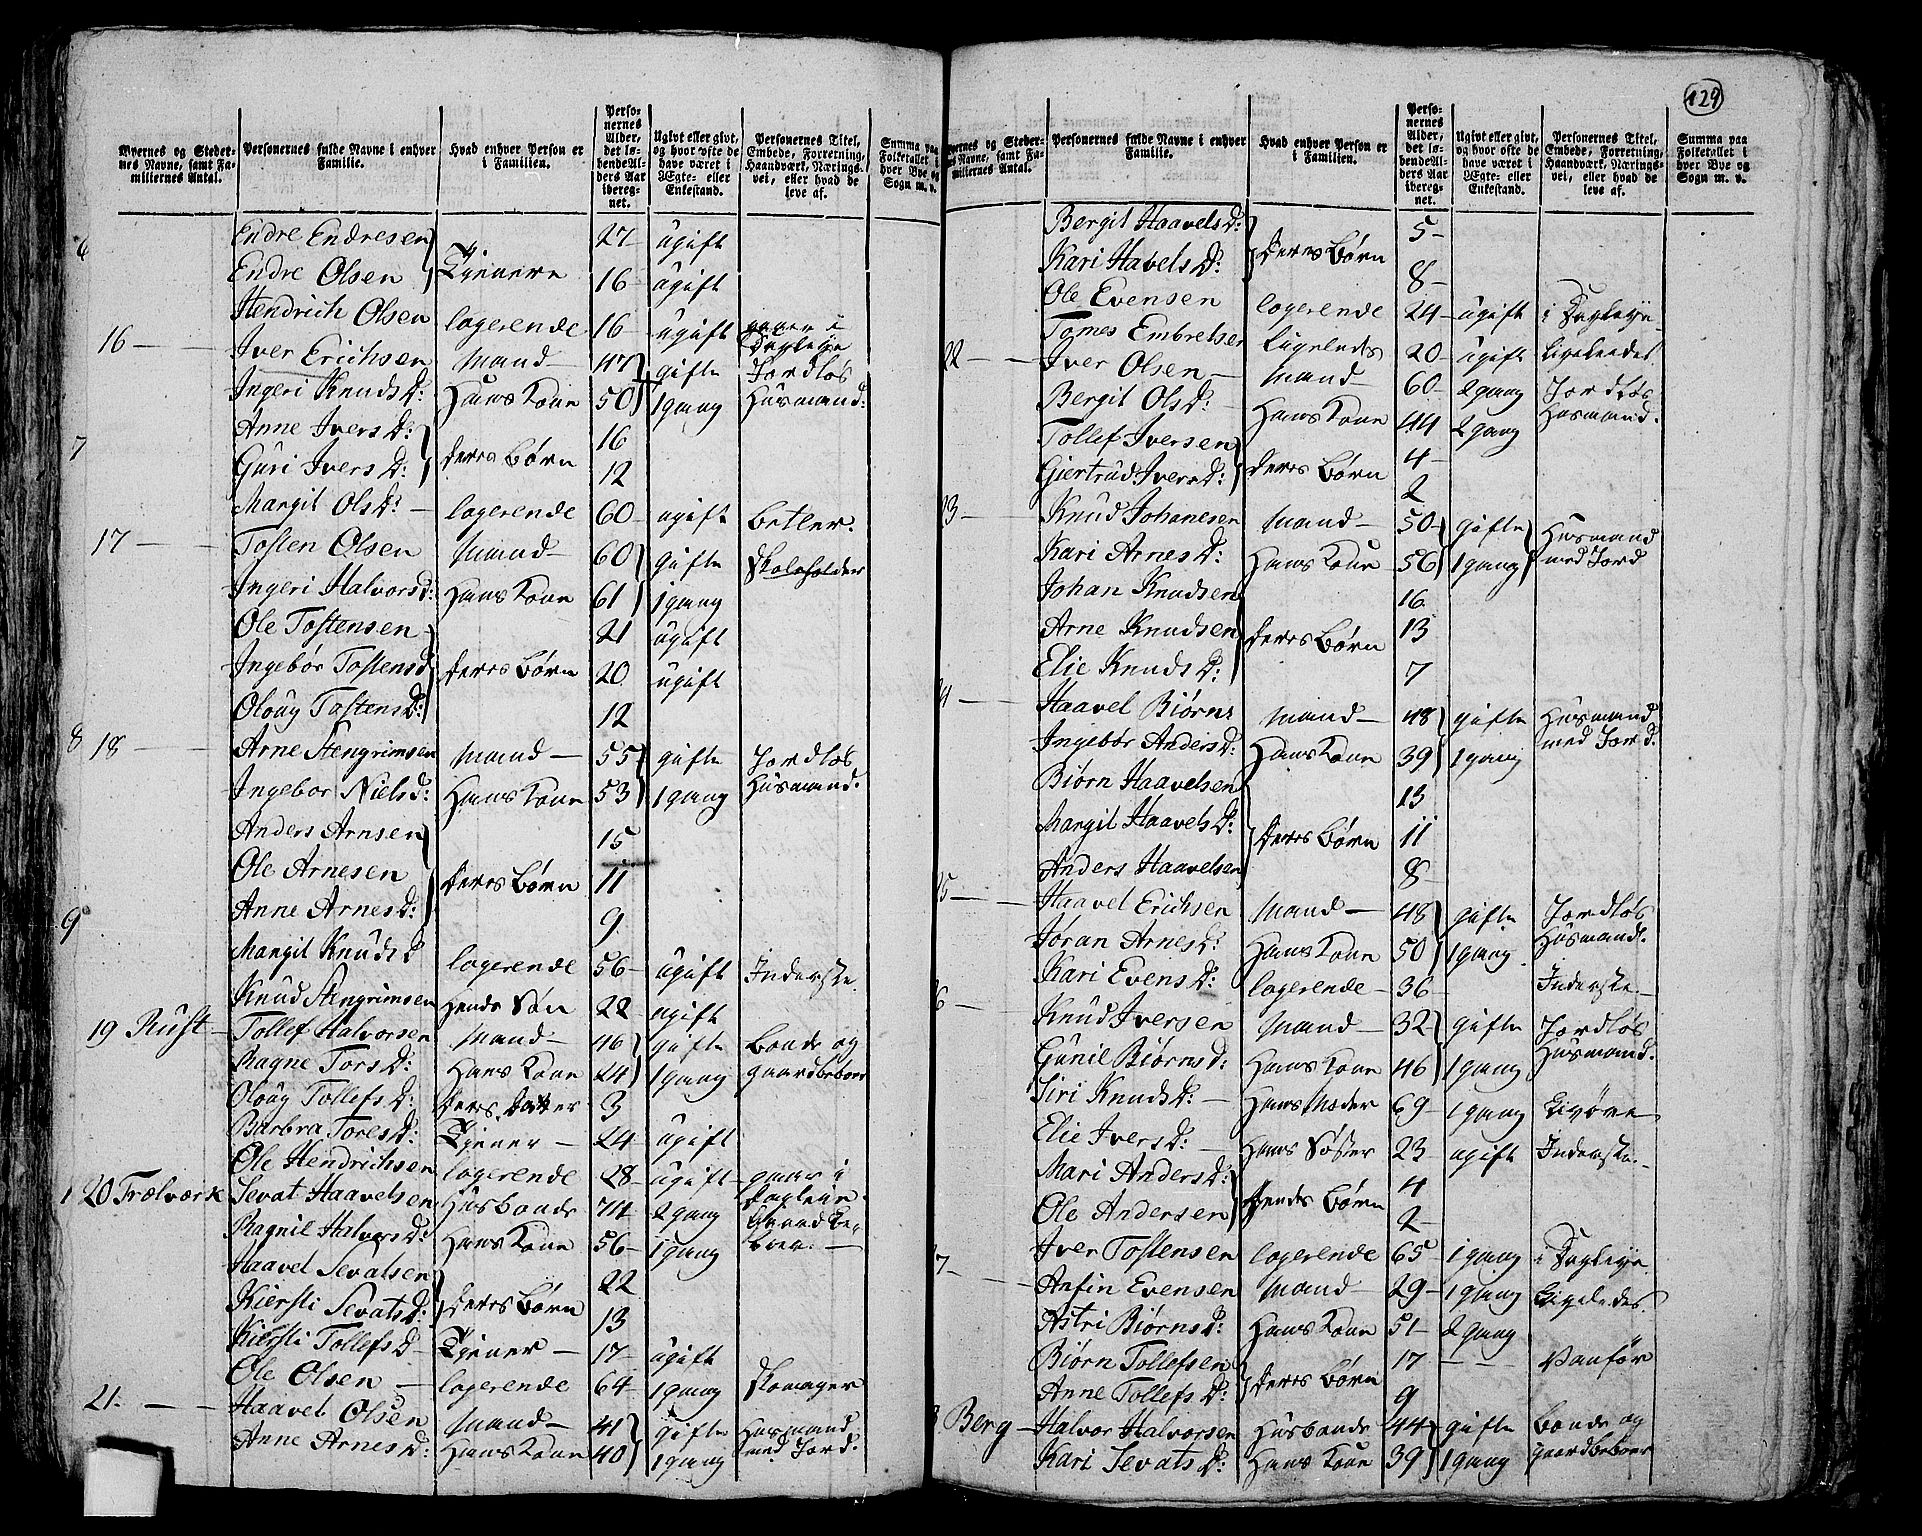 129
Byernes og Stedernes Navne, samt Familiernes Antal. | Personernes fulde Navne i enhver Familie. | Hvad enhver Person er i Familien. | Personernes Alder, det løbende Alders Aar iberegnet. | Ugivt eller givt, og hvor ofte de have været i Ægte- eller Enkestand. | Personernes Titel, Embede, Forretning, Haandværk, Næringsvei, eller hvad de leve af. | Summa paa Folketallet i hver Bye og Sogn m. v.
Endre Endresen 27 ugift
Endre Olsen Tjenere 16 ugift
Hendrich Olsen logerende 16 ugift gaaer i Dagleje
16 Iver Erichsen Mand 47 gifte Jordløs
Ingeri Knuds D: Hans Kone 50 1 gang Husmand:
Anne Ivers D: 16
Guri Ivers D: deres Børn 12
Margit Ols D: logerende 60 ugift Betler.
17 Tosten Olsen Mand 60 gifte Skoleholder
Ingeri Halvors D: Hans Kone 61 1 gang
Ole Tostensen 21 ugift
Ingebør Tostens D deres Børn 20 ugift
Oloug Tostens D: 12
18 Arne Stengrimsen Mand 55 gifte Jordløs
Ingebor Niels D: Hans Kone 53 1 gang Husmand.
Anders Arnsen 15
Ole Arnesen deres Børn 11
Anne Arnes D: 9
Margit Knuds D logerende 56 ugift Inderste.
Knud Stengrimsen Hends Søn 22 ugift
19 Rust Tollef Halvorsen Mand 46 gifte Bonde og
Ragne Tors D: Hans Kone 24 1 gang gaardbeboer
Oloug Tollefs D: deres Datter 3
Barbra Tores D: Tjener 24 ugift
Ole Hendrichsen logerende 28 ugift gaaer i
20 Trælværk Sevat Haavelsen Husbonde 74 2 gang Dagleje.
Ragnil Halvors D: Hans Kone 56 1 gang
Haavel Sevatsen 22
Kiersti Sevats D: deres Børn 13
Kiersti Tollefs D Tjener 17 ugift
Ole Olsen logerende 64 1 gang Skomager
21. Haavel Olsen Mand 41 gifte Husmand
Anne Arnes D: Hans Kone 40 1 gang med Jord.
6
7
8
9
1
Byernes og Stedernes Navne, samt Familiernes Antal. | Personernes fulde Navne i enhver Familie. | Hvad enhver Person er i Familien. | Personernes Alder, det løbende Alders Aar iberegnet. | Ugivt eller givt, og hvor ofte de have været i Ægte- eller Enkestand. | Personernes Titel, Embede, Forretning, Haandværk, Næringsvei, eller hvad de leve af. | Summa paa Folketallet i hver Bye og Sogn m. v.
Bergit Haavels D: 5
Kari Havels D: deres Børn 8
Ole Evensen logerende 24 ugift i Dagleje
Tomes Embretsen Ligeledes 20 ugift Ligeledes
22 Iver Olsen Mand 60 2 gang Jordløs
Bergit Ols D: Hans Kone 44 2 gang Husmand.
Tollef Iversen 4
Giertrud Ivers D: deres Børn 2
23 Knud Johanesen Mand 50 gifte Husmand
Kari Arnes D: Hans Kone 56 1 gang med Jord
Johan Knudsen 16
Arne Knudsen deres Børn 13
Elie Knuds D: 7
Haavel Biørns Mand 48 gifte Husmand
Ingebør Anders D: Hans Kone 39 1 gang med Jord.
Biørn Haavelsen 13
Margit Haavels D: deres Børn 11
Anders Haavelsen 8
5 Haavel Erichsen Mand 48 gifte Jordløs
Jøran Arnes D: Hans Kone 50 1 gang Husmand.
Kari Evens D: logerende 36 Inderste.
6 Knud Iversen Mand 32 gifte Jordløs
Gunil Biørns D: Hans Kone 46 1 gang Husmand.
Siri Knuds D: Hans Moder 69 1 gang
Elie Ivers D: Hans Søster 23 ugift Inderste.
Mari Anders D: 4
Ole Andersen Hendes Børn 2
Iver Tostensen logerende 65 1 gang i Dagleje
7 Anfin Evensen Mand 29 1 gang Ligeledes.
Astri Biørns D: Hans Kone 51 2 gang
Biørn Tollefsen 17 Vanfør
Anne Tollefs D: deres Børn 9
Berg Halvor Halvorsen Husbonde 44 gifte Bonde og
Kari Sevats D: Hans Kone 39 1 gang gaardbeboer